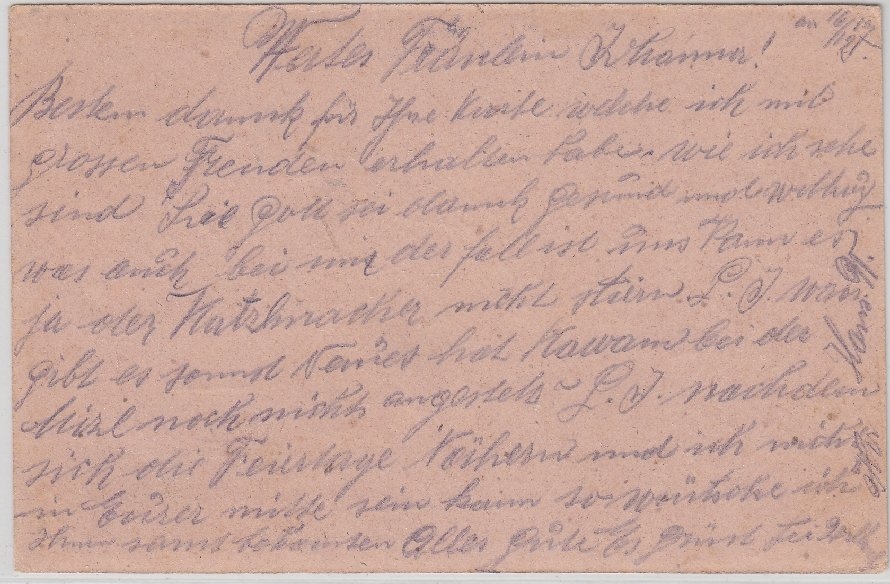 an 16/12
1917.
Wertes Fräulein Johanna!
Bestem dannk für Ihre Karte welche ich mit
grossen Freuden erhalten habe. wie ich sehe
sind Sie gott sei dannk gesund und wollauf
was auch bei mir der fall ist uns kann es
ja der nicht L. J. was
gibt es sonnst Neues hat bei der
Mizl noch nichts angestelt L. J. nachdem
sich die Feiertage Nähern und ich nicht
in Eurer mitte sein kann so wüntsche ich
Ihnen samt bekannten Alles gute Es grüsst